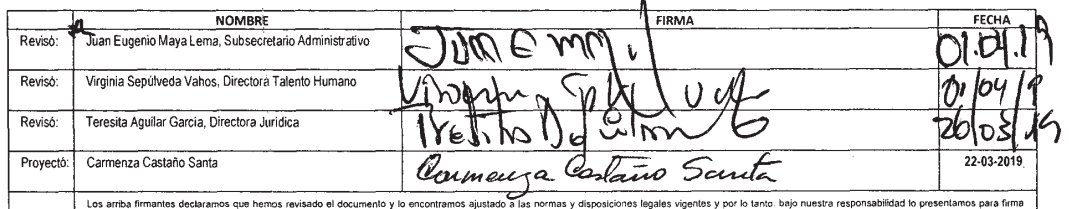 NOMBRE FIRMA FECHA
Revisó: Juan Eugenio Maya Lema, Subsecretario Administrativo 01.04.19
Revisó: Virginia Sepúlveda Vahos, Directora Talento Humano 01/04/19
Revisó: Teresita Aguilar García, Directora Jurídica 26/03/19
Proyectó: Carmenza Castaño Santa Carmenza Castaño Santa 22-03-2019
Los arriba firmantes declaramos que hemos revisado el documento y lo encontramos ajustado a las normas y disposiciones legales vigentes y por lo tanto, bajo nuestra responsabilidad lo presentamos para firma